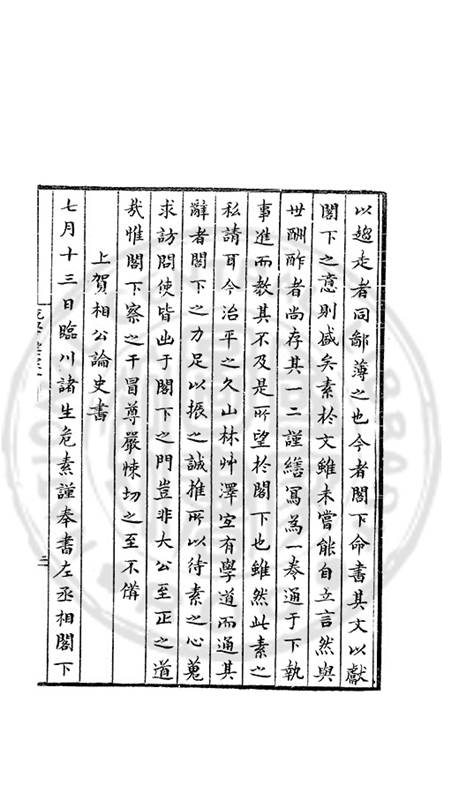 以趨走者同鄙薄之也今者閣下命書其文以獻
閣下之意則盛矣素於文雖未嘗能自立言然與
世酬酢者尚存其一二謹繕寫為一奏通于下執
事進而教其不及是所望於閣下也雖然此素之
私請耳今治平之久山林艸澤宜有學道而通其
辭者閣下之力足以振之誠推所以待素之心蒐
求訪問使皆出于閣下之門豈非大公至正之道
㢤惟閣下察之干冒尊嚴悚切之至不備
上賀相公論史書
七月十三日臨川諸生危素謹奉書左丞相閣下
三